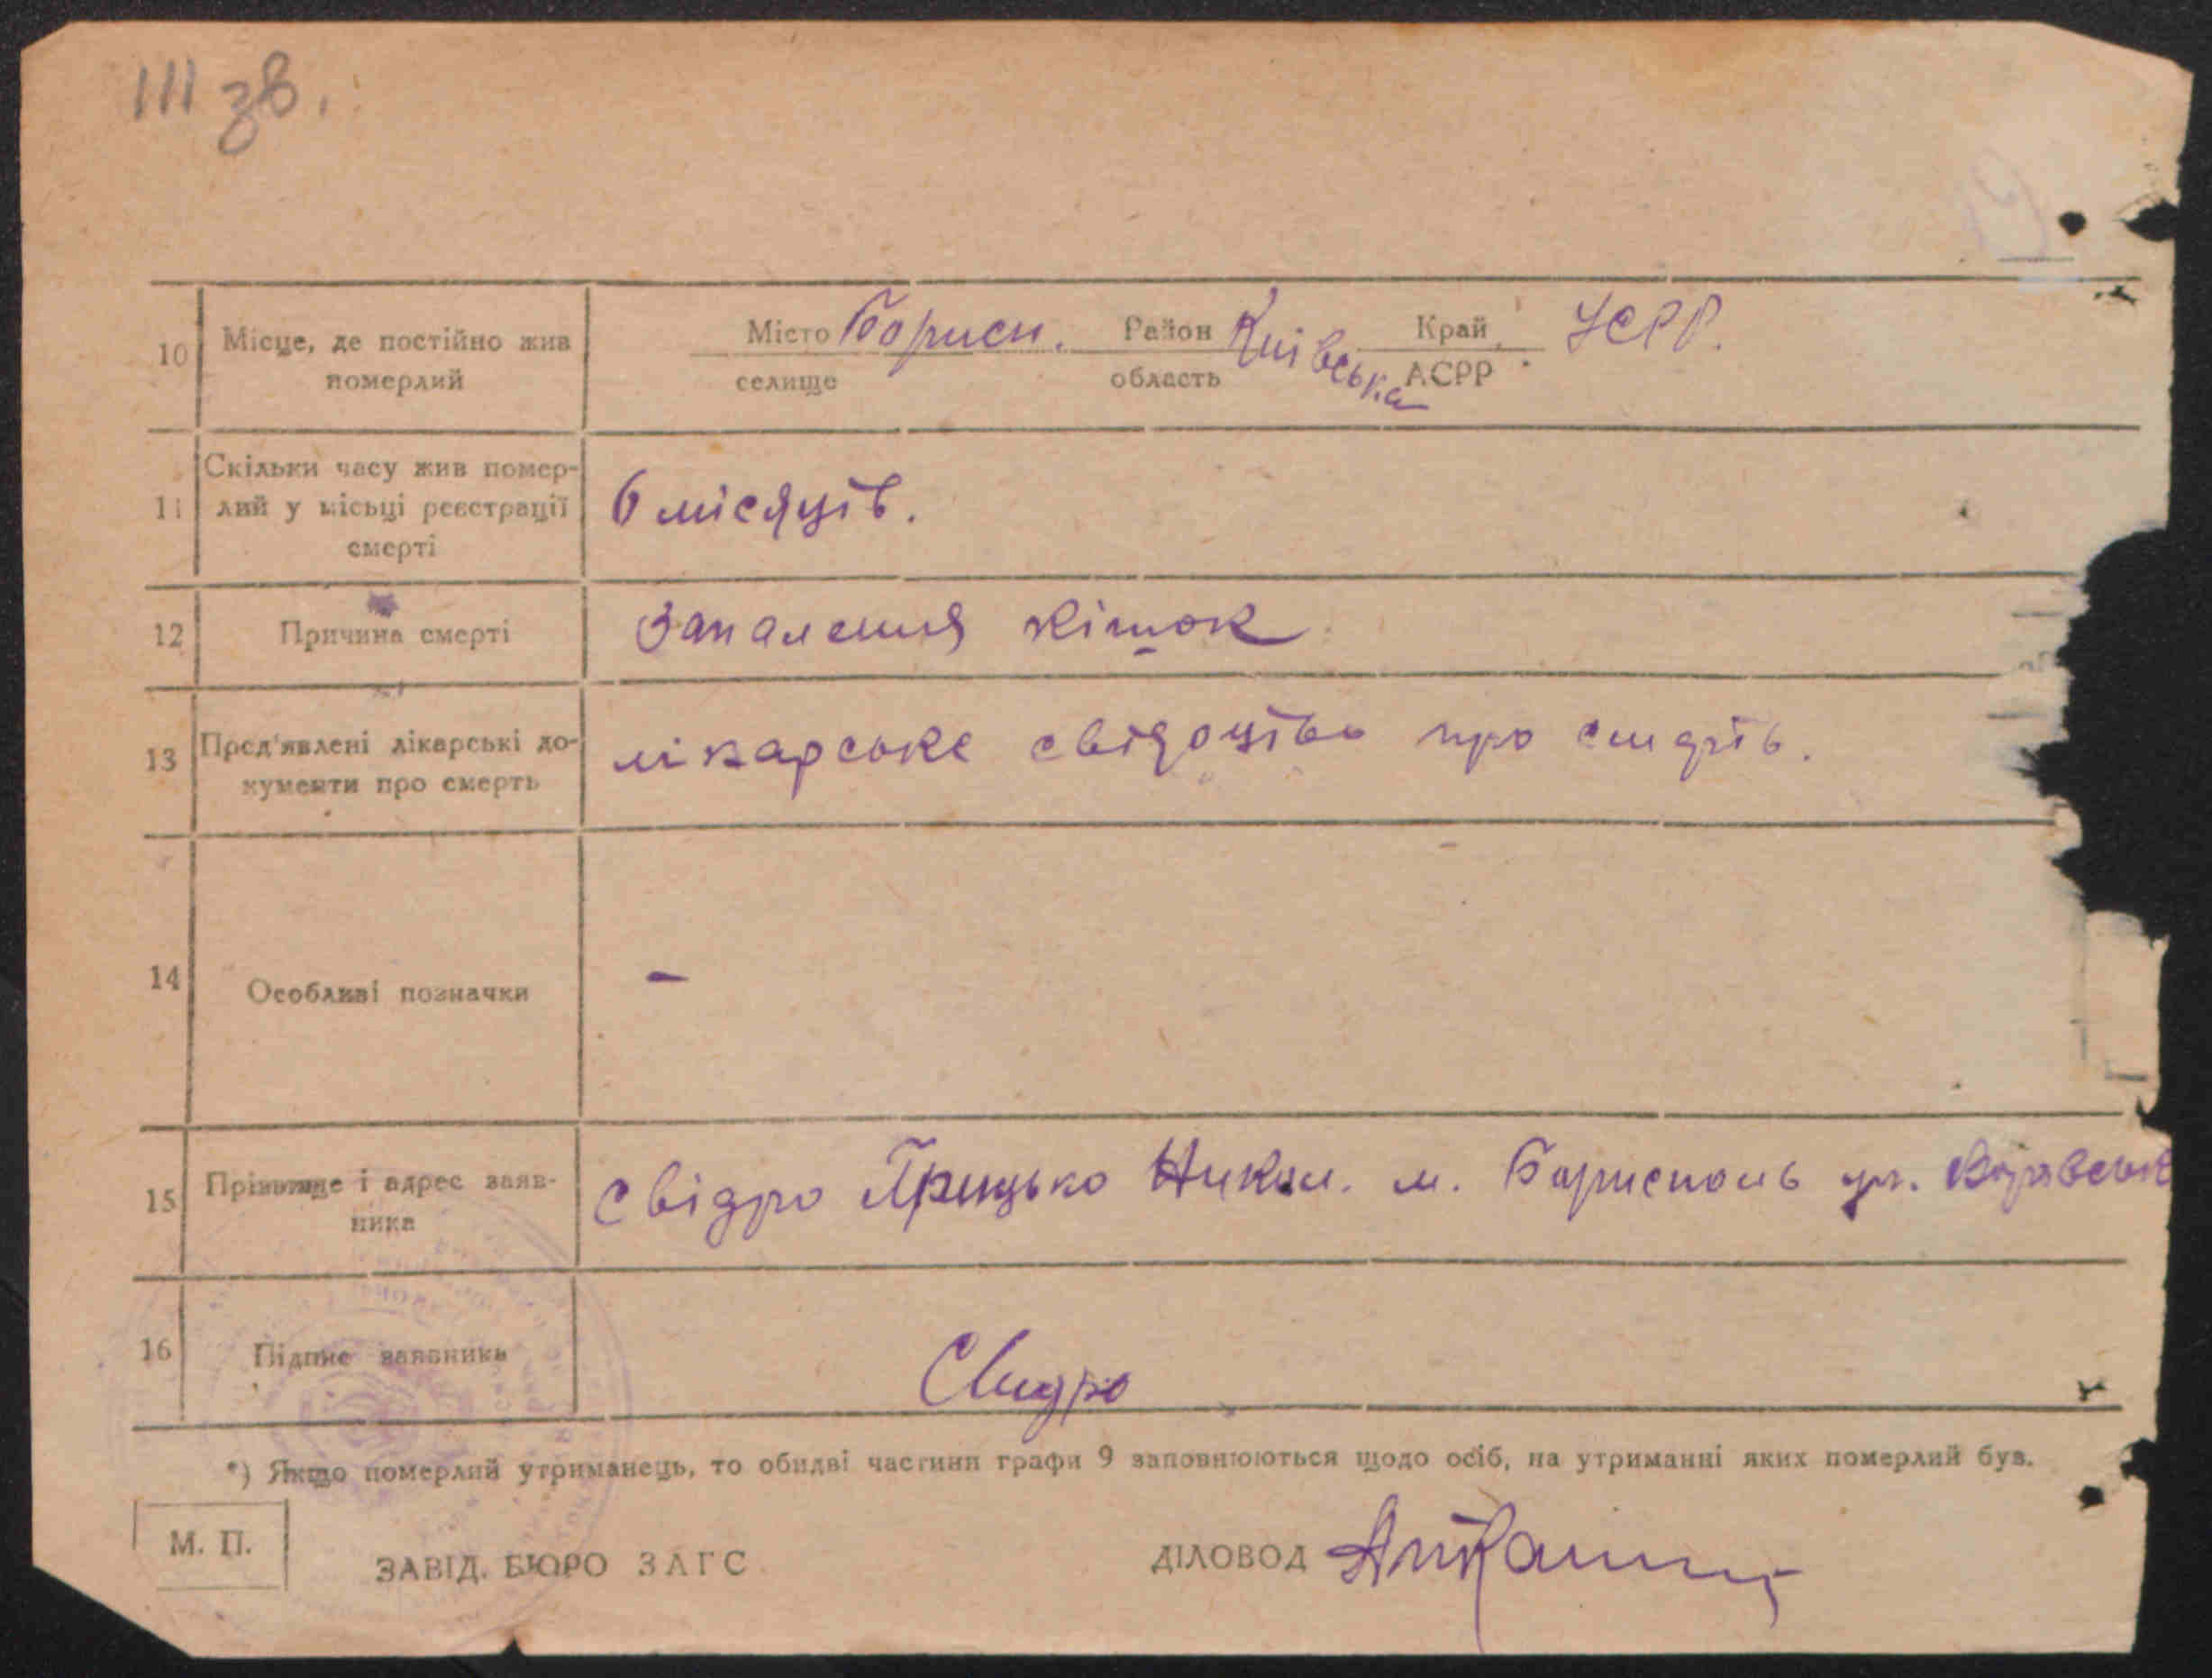 111 зв.
10 Місце, де постійно жив померлий
Місто Борисп. Район Київська Край УСРР.
селище область АСРР
11 Скільки часу жив помер-
лий у місьці реєстрації
смерті
6 місяців.
12 Причина смерті Запалення кішок
13 Пред'явлені лікарські до-
кументи про смерть
лікарське свідоцтво про смерть.
14 Особливі позначки –
15 Прізвище і адрес заяв-
ника
Свідро Грицько Никол. м. Бориспіль ул.
16 Підпис заявника Свидро
*) Якщо померлий утриманець, то обидві частини графи 9 заповнюються щодо осіб, на утриманні яких померлий був.
М. П.
ЗАВІД. БЮРО ЗАГС ДІЛОВОД